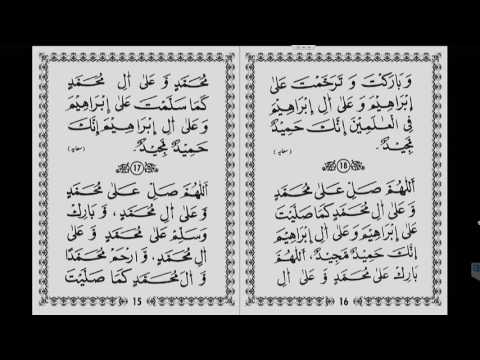 مُحَمَّدٍ وَّ عَلٰى اٰلِ مُحَمَّدٍ
كَمَا سَلَّمْتَ عَلٰى اِبْرَاهِيْمَ
وَ عَلٰى اٰلِ اِبْرَاهِيْمَ اِنَّكَ
حَمِيْدٌ مَّجِيْدٌ. (سعایہ)
17
اَللّٰهُمَّ صَلِّ عَلٰى مُحَمَّدٍ
وَّ عَلٰى اٰلِ مُحَمَّدٍ، وَّ بَارِكْ
وَسَلِّمْ عَلٰى مُحَمَّدٍ وَّ عَلٰى
اٰلِ مُحَمَّدٍ، وَّ ارْحَمْ مُحَمَّدًا
وَّ اٰلَ مُحَمَّدٍ كَمَا صَلَّيْتَ
15
وَ بَارَكْتَ وَ تَرَحَّمْتَ عَلٰى
اِبْرَاهِيْمَ وَ عَلٰى اٰلِ اِبْرَاهِيْمَ
فِي الْعٰلَمِيْنَ اِنَّكَ حَمِيْدٌ
مَّجِيْدٌ. (سعایہ)
18
اَللّٰهُمَّ صَلِّ عَلٰى مُحَمَّدٍ
وَّ عَلٰى اٰلِ مُحَمَّدٍ كَمَا صَلَّيْتَ
عَلٰى اِبْرَاهِيْمَ وَ عَلٰى اٰلِ اِبْرَاهِيْمَ
اِنَّكَ حَمِيْدٌ مَّجِيْدٌ، اَللّٰهُمَّ
بَارِكْ عَلٰى مُحَمَّدٍ وَّ عَلٰى اٰلِ
16